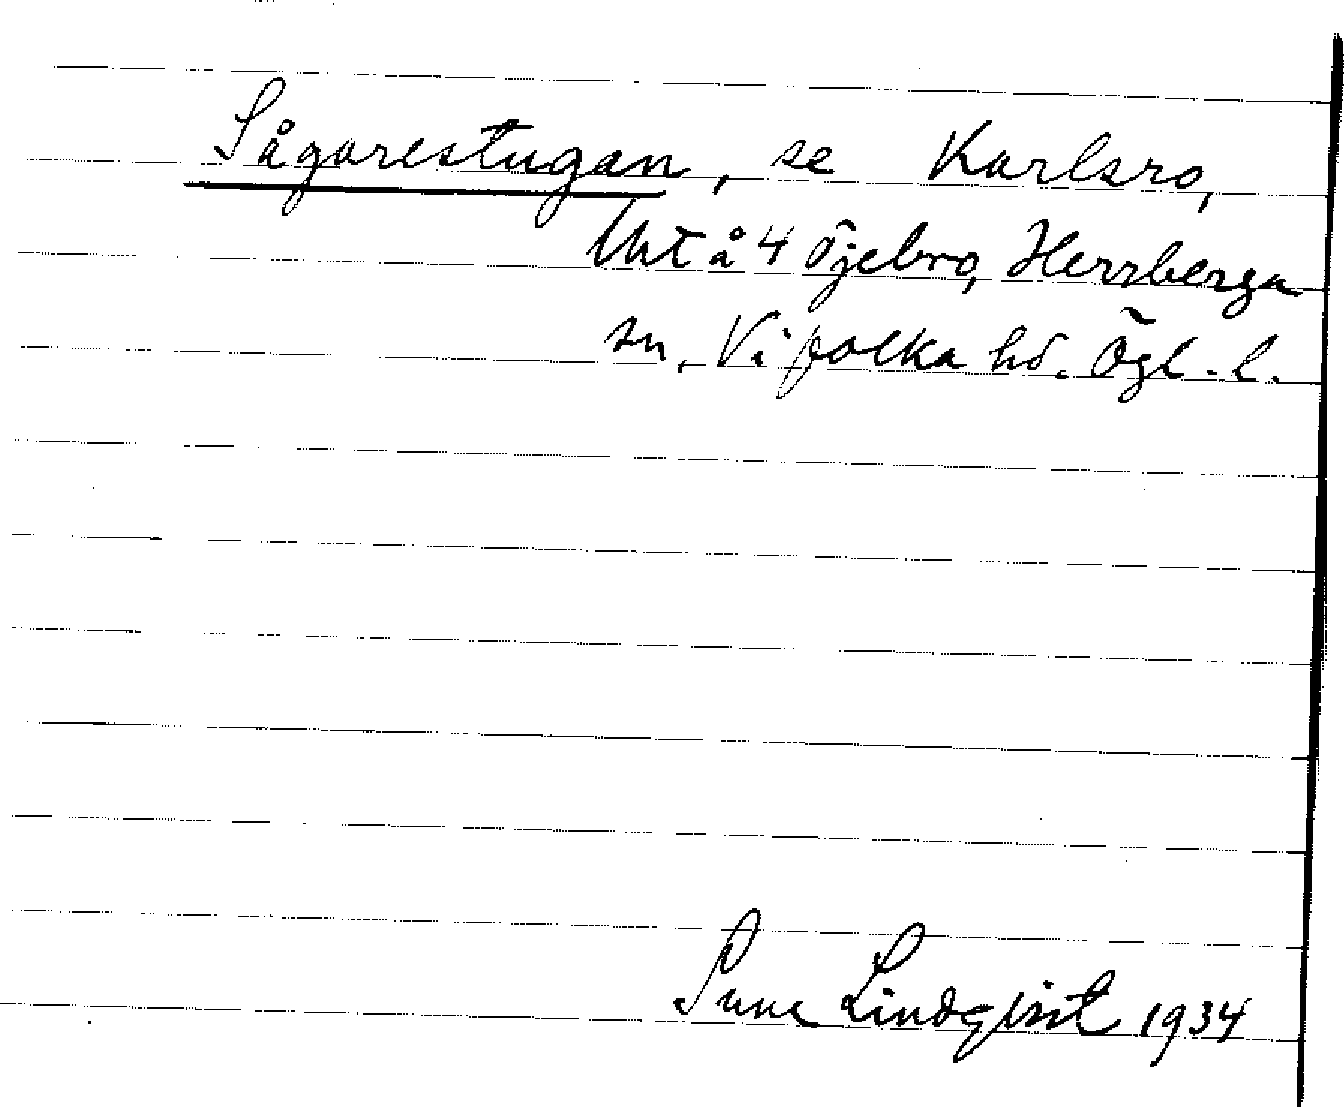 Sågarestugan, se Karlsro,
Unt å 4 Öjebro, Herrberga
sn, Vifolka hd. Ögl. l.
Sune Lindqvist 1934